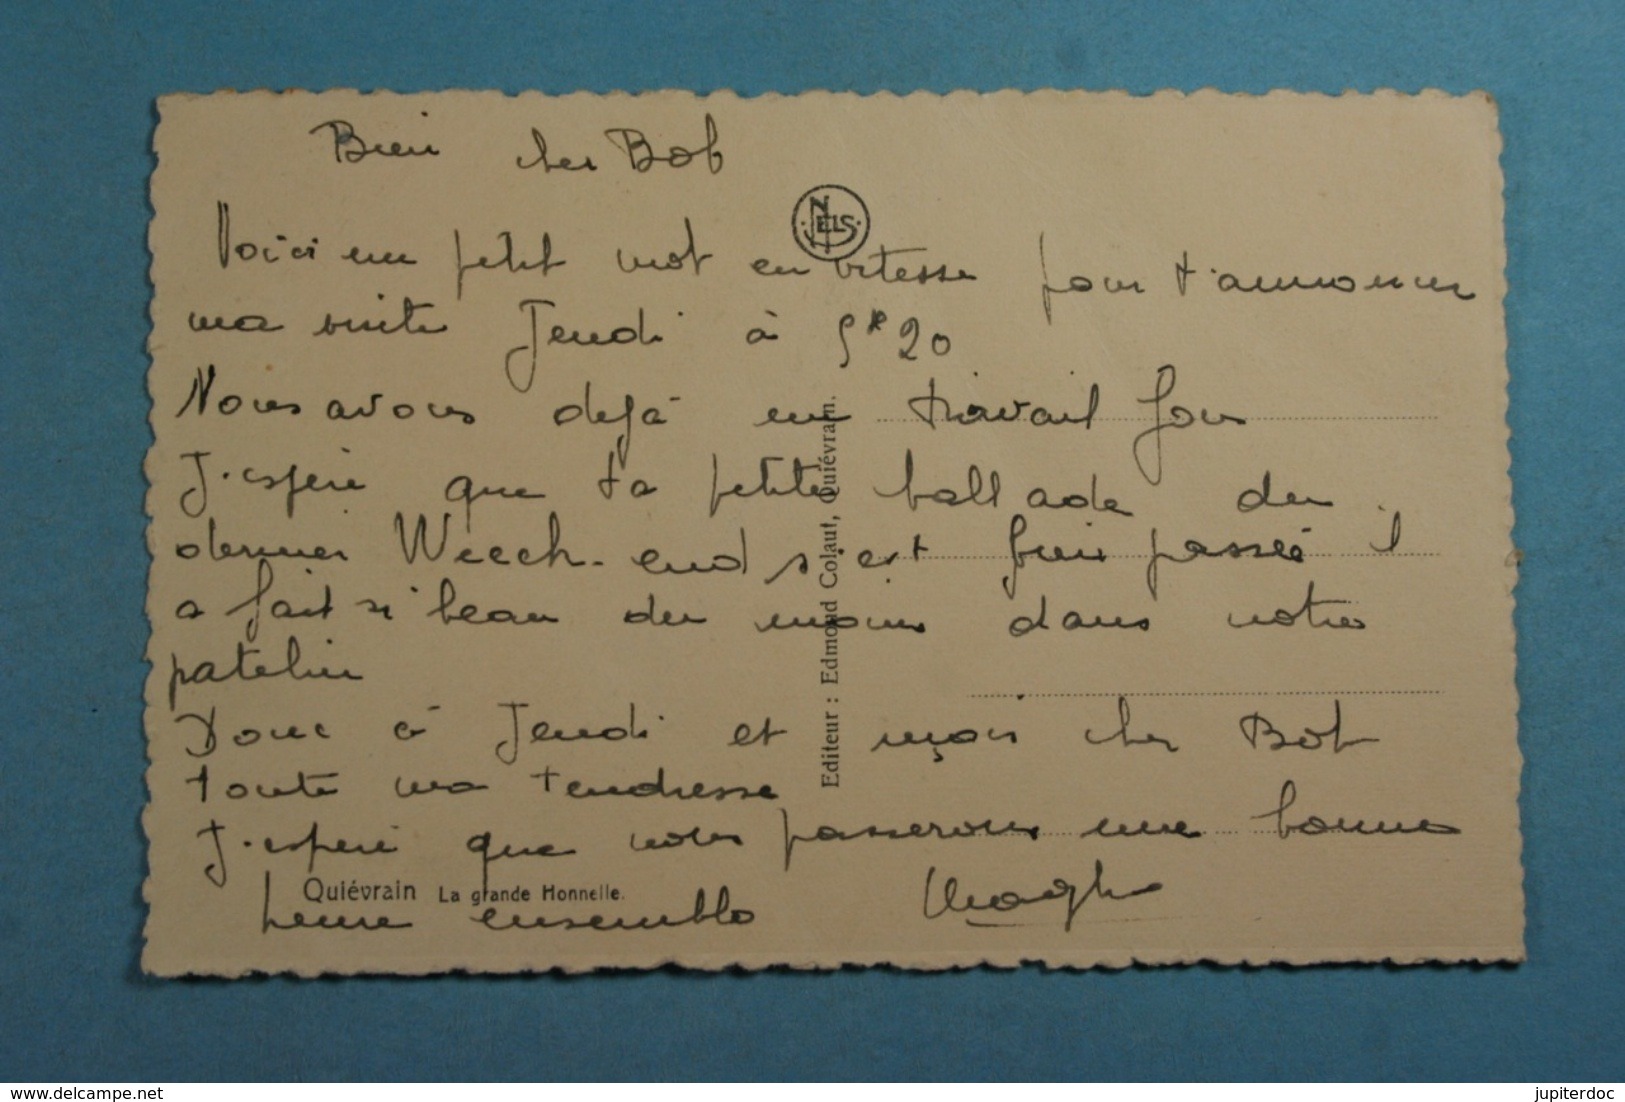 Bien cher Bob
NELS
Voici un petit mot en vitesse pour t'annoncer
ma visite Jeudi à 5h 20
Nous avons dejà un travail fou
J'espère que ta petite ballade du
dernier Weeck-end s'est bien passée il
a fait si beau du moins dans notre
patelin
Donc à Jeudi et reçois cher Bob
toute ma tendresse
J'espère que nous passerons une bonne
heure ensemble
Quiévrain La grande Honnelle.
Editeur : Edmond Colaut, Quiévrain.
www.delcampe.net
jupiterdoc